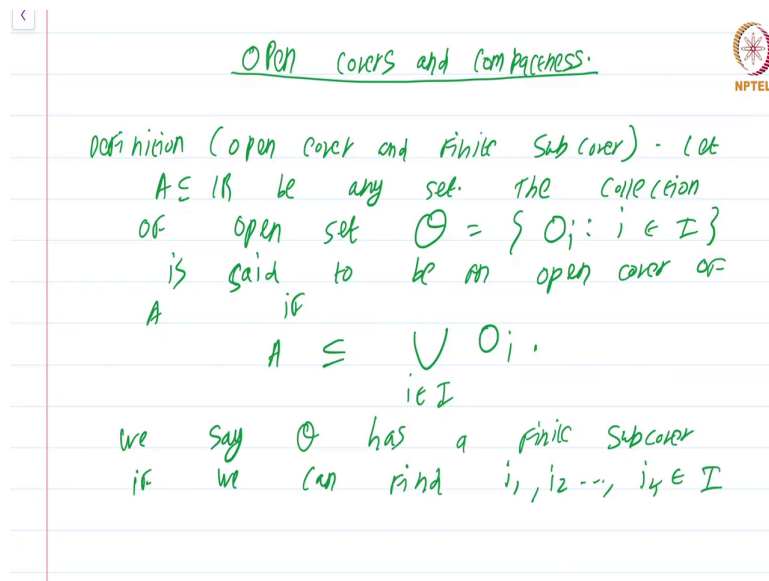 Open Covers and Compactness.
NPTEL
Definition (open cover and Finite Subcover). Let
A ⊆ ℝ be any set. The Collection
of open set 𝒪 = { O_i : i ∈ I }
is said to be an open cover of
A if
A ⊆ ⋃ O_i .
i ∈ I
we say 𝒪 has a finite Subcover
if we can find i_1, i_2 ..., i_k ∈ I